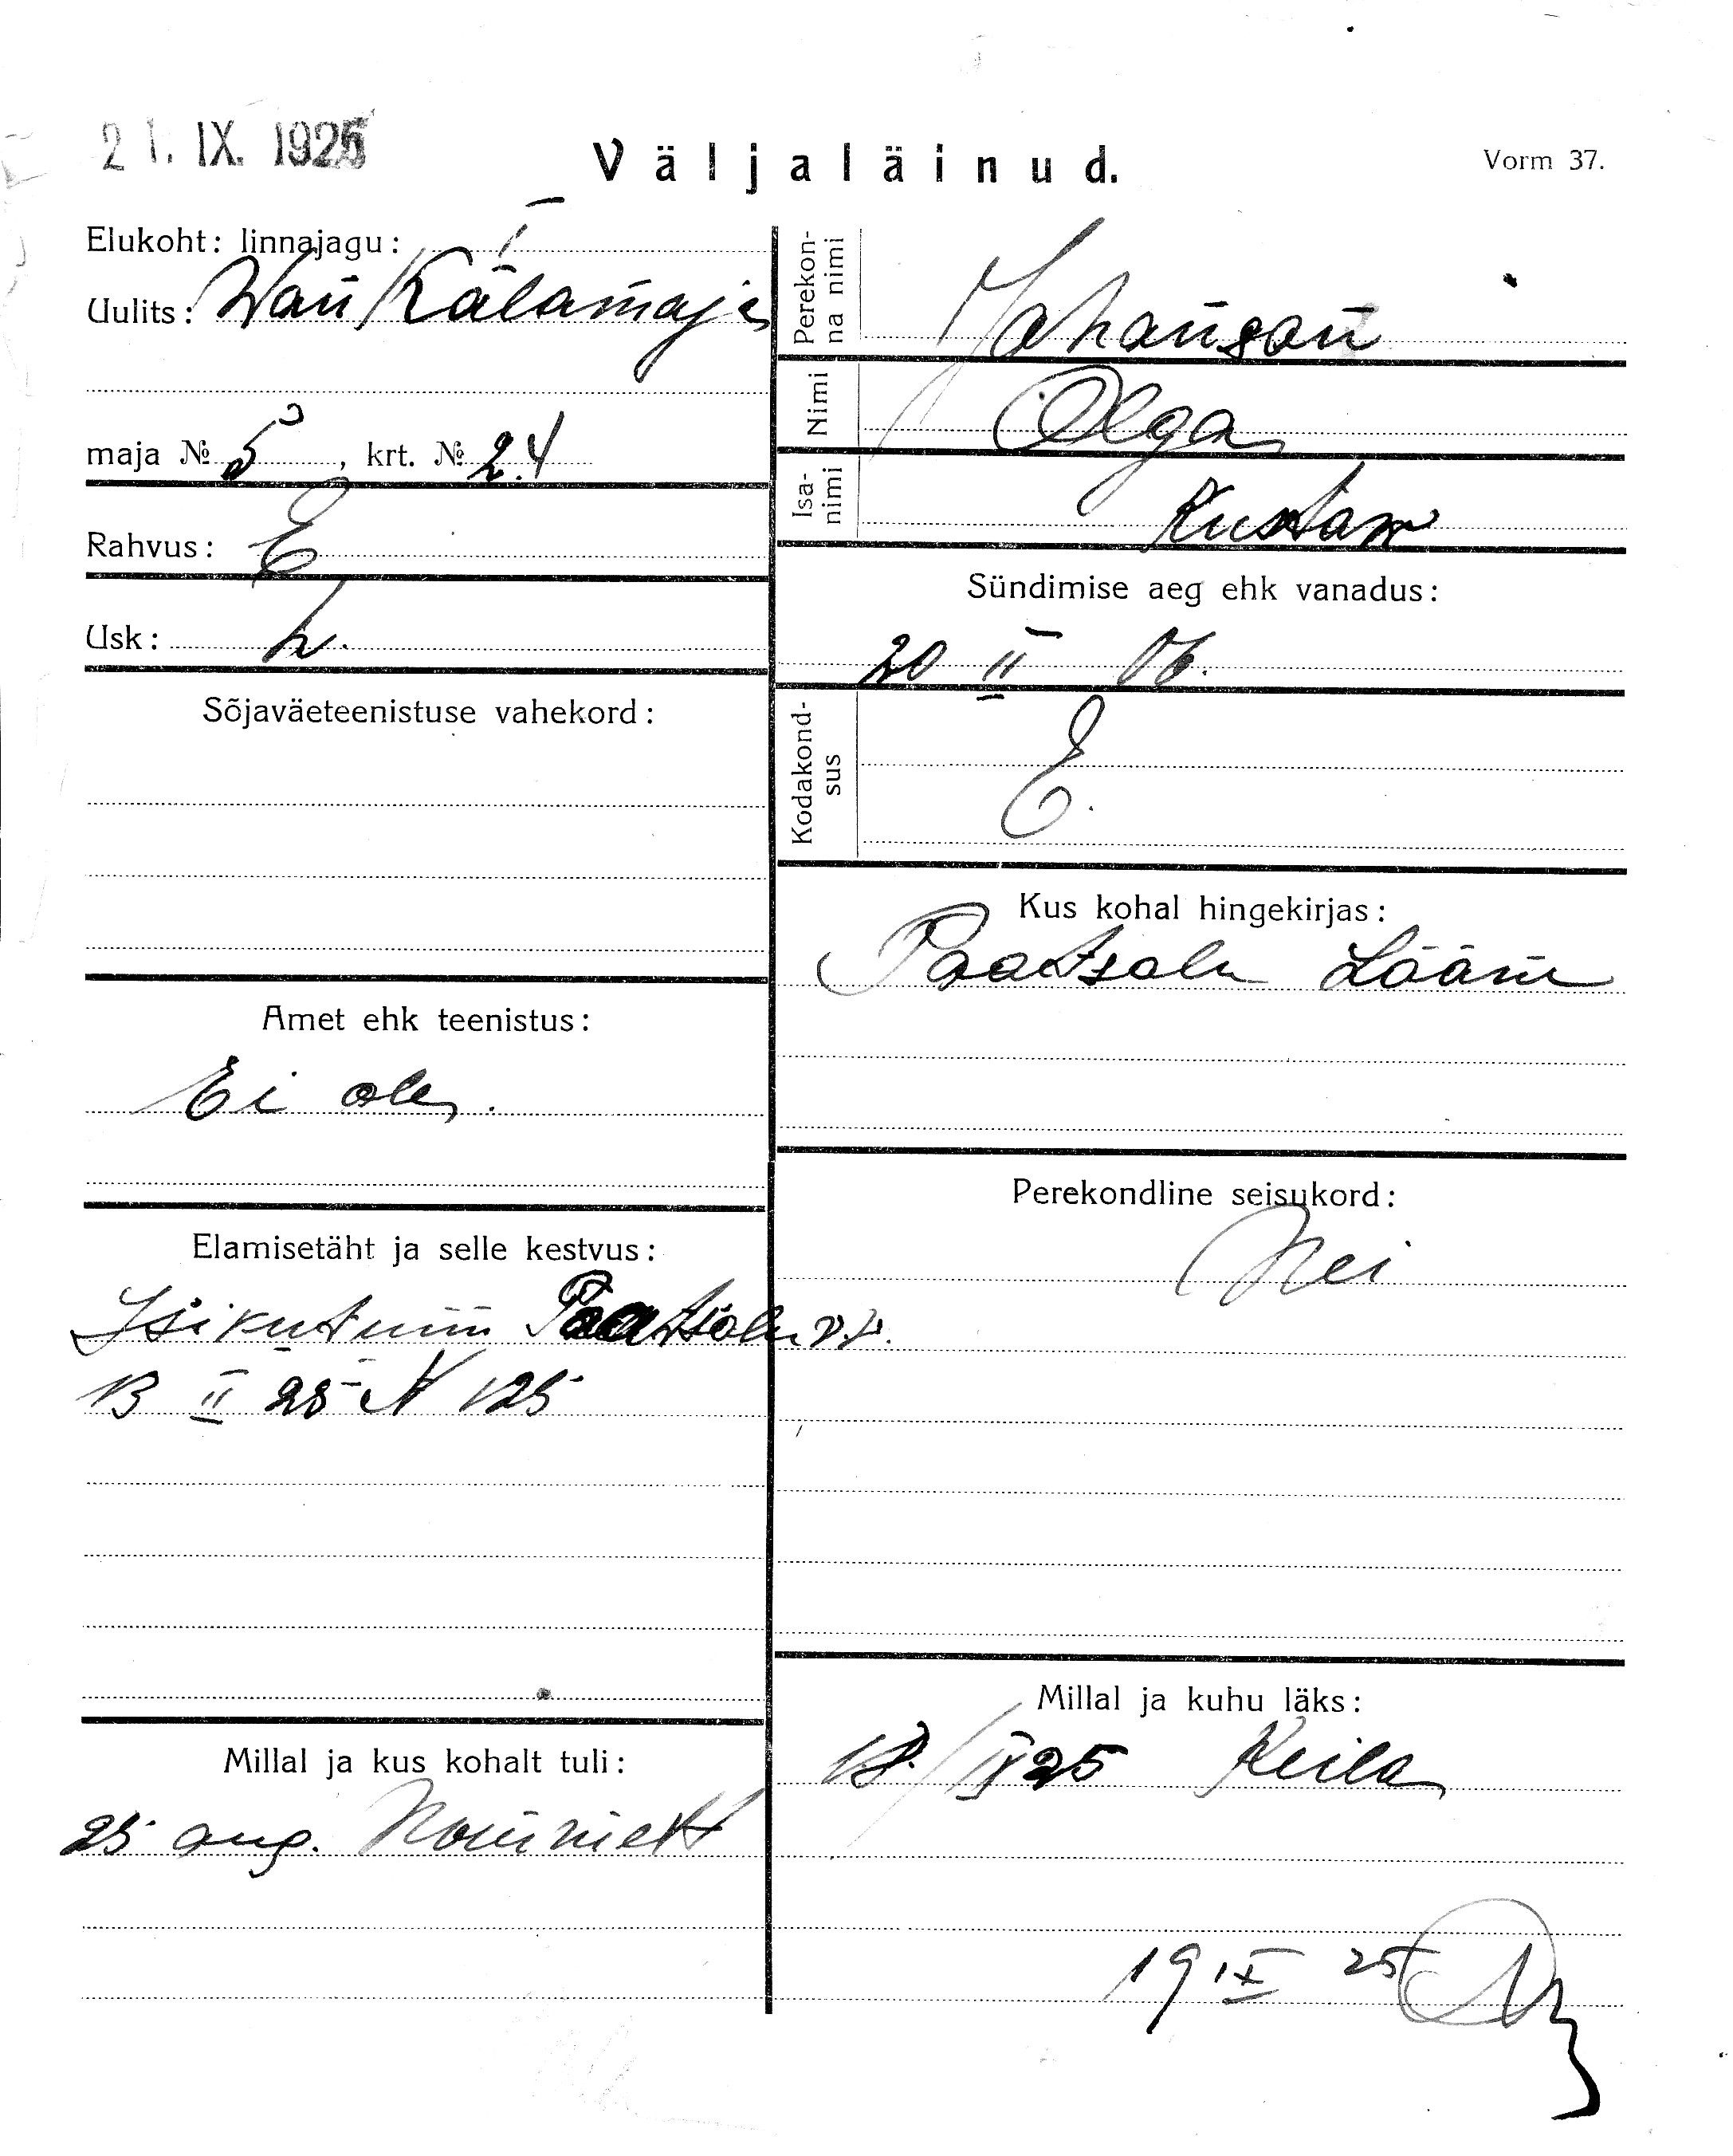 21. IX. 1925
Väljaläinud.
Vorm 37.
Elukoht: linnajagu: I
Uulits: Wan Kalamaja
maja № 5, krt. № 24
Rahvus: E
Usk: L.
Sõjaväeteenistuse vahekord:
Amet ehk teenistus:
Ei ole.
Elamisetäht ja selle kestvus:
Isikutunn Paatsalu v.v.
13 II 25 N 125
Millal ja kus kohalt tuli:
25 aug.
Perekonna nimi Johanson
Nimi Olga
Isanimi Kustav
Sündimise aeg ehk vanadus:
20 II 06.
Kodakondsus E.
Kus kohal hingekirjas:
Paatsalu Lääne
Perekondline seisukord:
Nei
Millal ja kuhu läks:
18./IX 25 Keila
19 IX 25